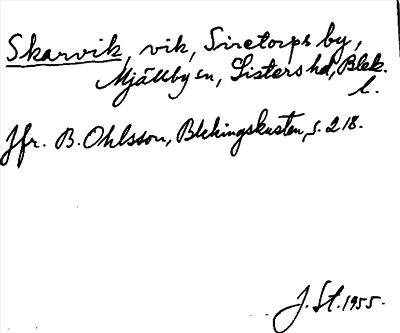 Skarvik, vik, Siretorps by,
Mjällby sn, Listers hd, Blek.
l.
Jfr. B. Ohlsson, Blekingskusten, s. 218.
J. St. 1955.